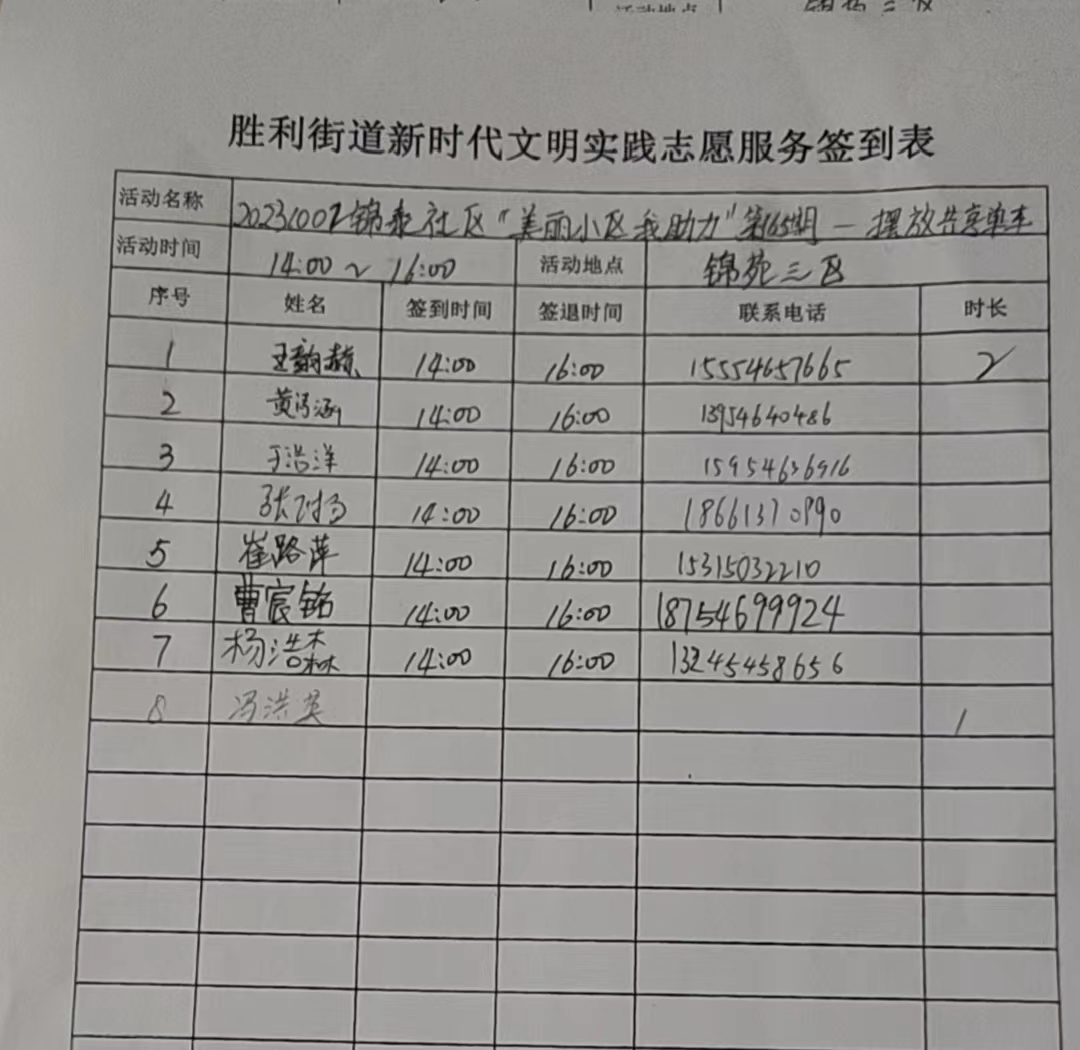 活动地点
胜利街道新时代文明实践志愿服务签到表
活动名称 20231002锦泰社区“美丽小区我助力”第165期—摆放共享单车
活动时间 14:00～16:00 活动地点 锦苑三区
序号 姓名 签到时间 签退时间 联系电话 时长
1 王韵赫 14:00 16:00 15554657665 2
2 黄涵 14:00 16:00 13954640486
3 于浩洋 14:00 16:00 15954636916
4 张 14:00 16:00 18661370890
5 崔路萍 14:00 16:00 15315032210
6 曹宸铭 14:00 16:00 18754699924
7 杨浩森 14:00 16:00 13245458656
8 冯洪英 1